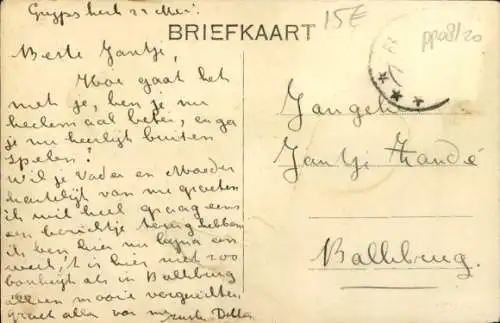 Grypskerk 22 Mei.
15E
ppo8/20
BRIEFKAART
Beste Jantje,
Hoe gaat het
met je, ben je nu
heelem aal beter, en ga
je nu heerlijk buiten
spelen?
Wil je Vader en Moeder
hartelijk van me groeten
ik wil heel graag eens
een berichtje terug hebben
ik ben hier nu bijna een
week, 't is hier niet zoo
boschrijk als in Balkbrug
alleen mooie vergezichten
groet allen van me zuster
Jongeh
Jantje Kandé
Balkbrug.